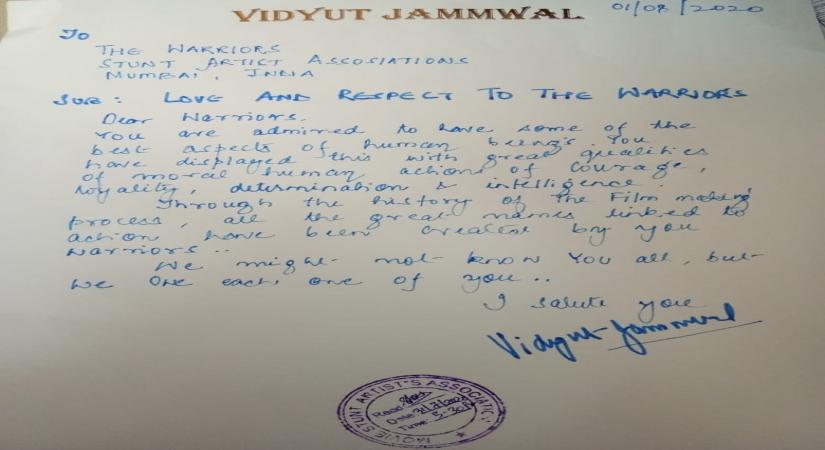 VIDYUT JAMMWAL
01/08/2020
To
THE WARRIORS
STUNT ARTIST ASSOSIATIONS
MUMBAI, INDIA
SUB: LOVE AND RESPECT TO THE WARRIORS
Dear Warriors.
You are admired to have some of the
best aspects of human being's. You
have displayed this with great qualities
of moral human actions of courage,
loyality, determination & intelligence.
Through the history of the Film making
process, all the great names linked to
action have been created by you
warriors..
We might not know You all, but
we owe each one of you..
I salute you
Vidyut Jammwal
MOVIE STUNT ARTIST'S ASSOCIATION
Date
Time: 5-30